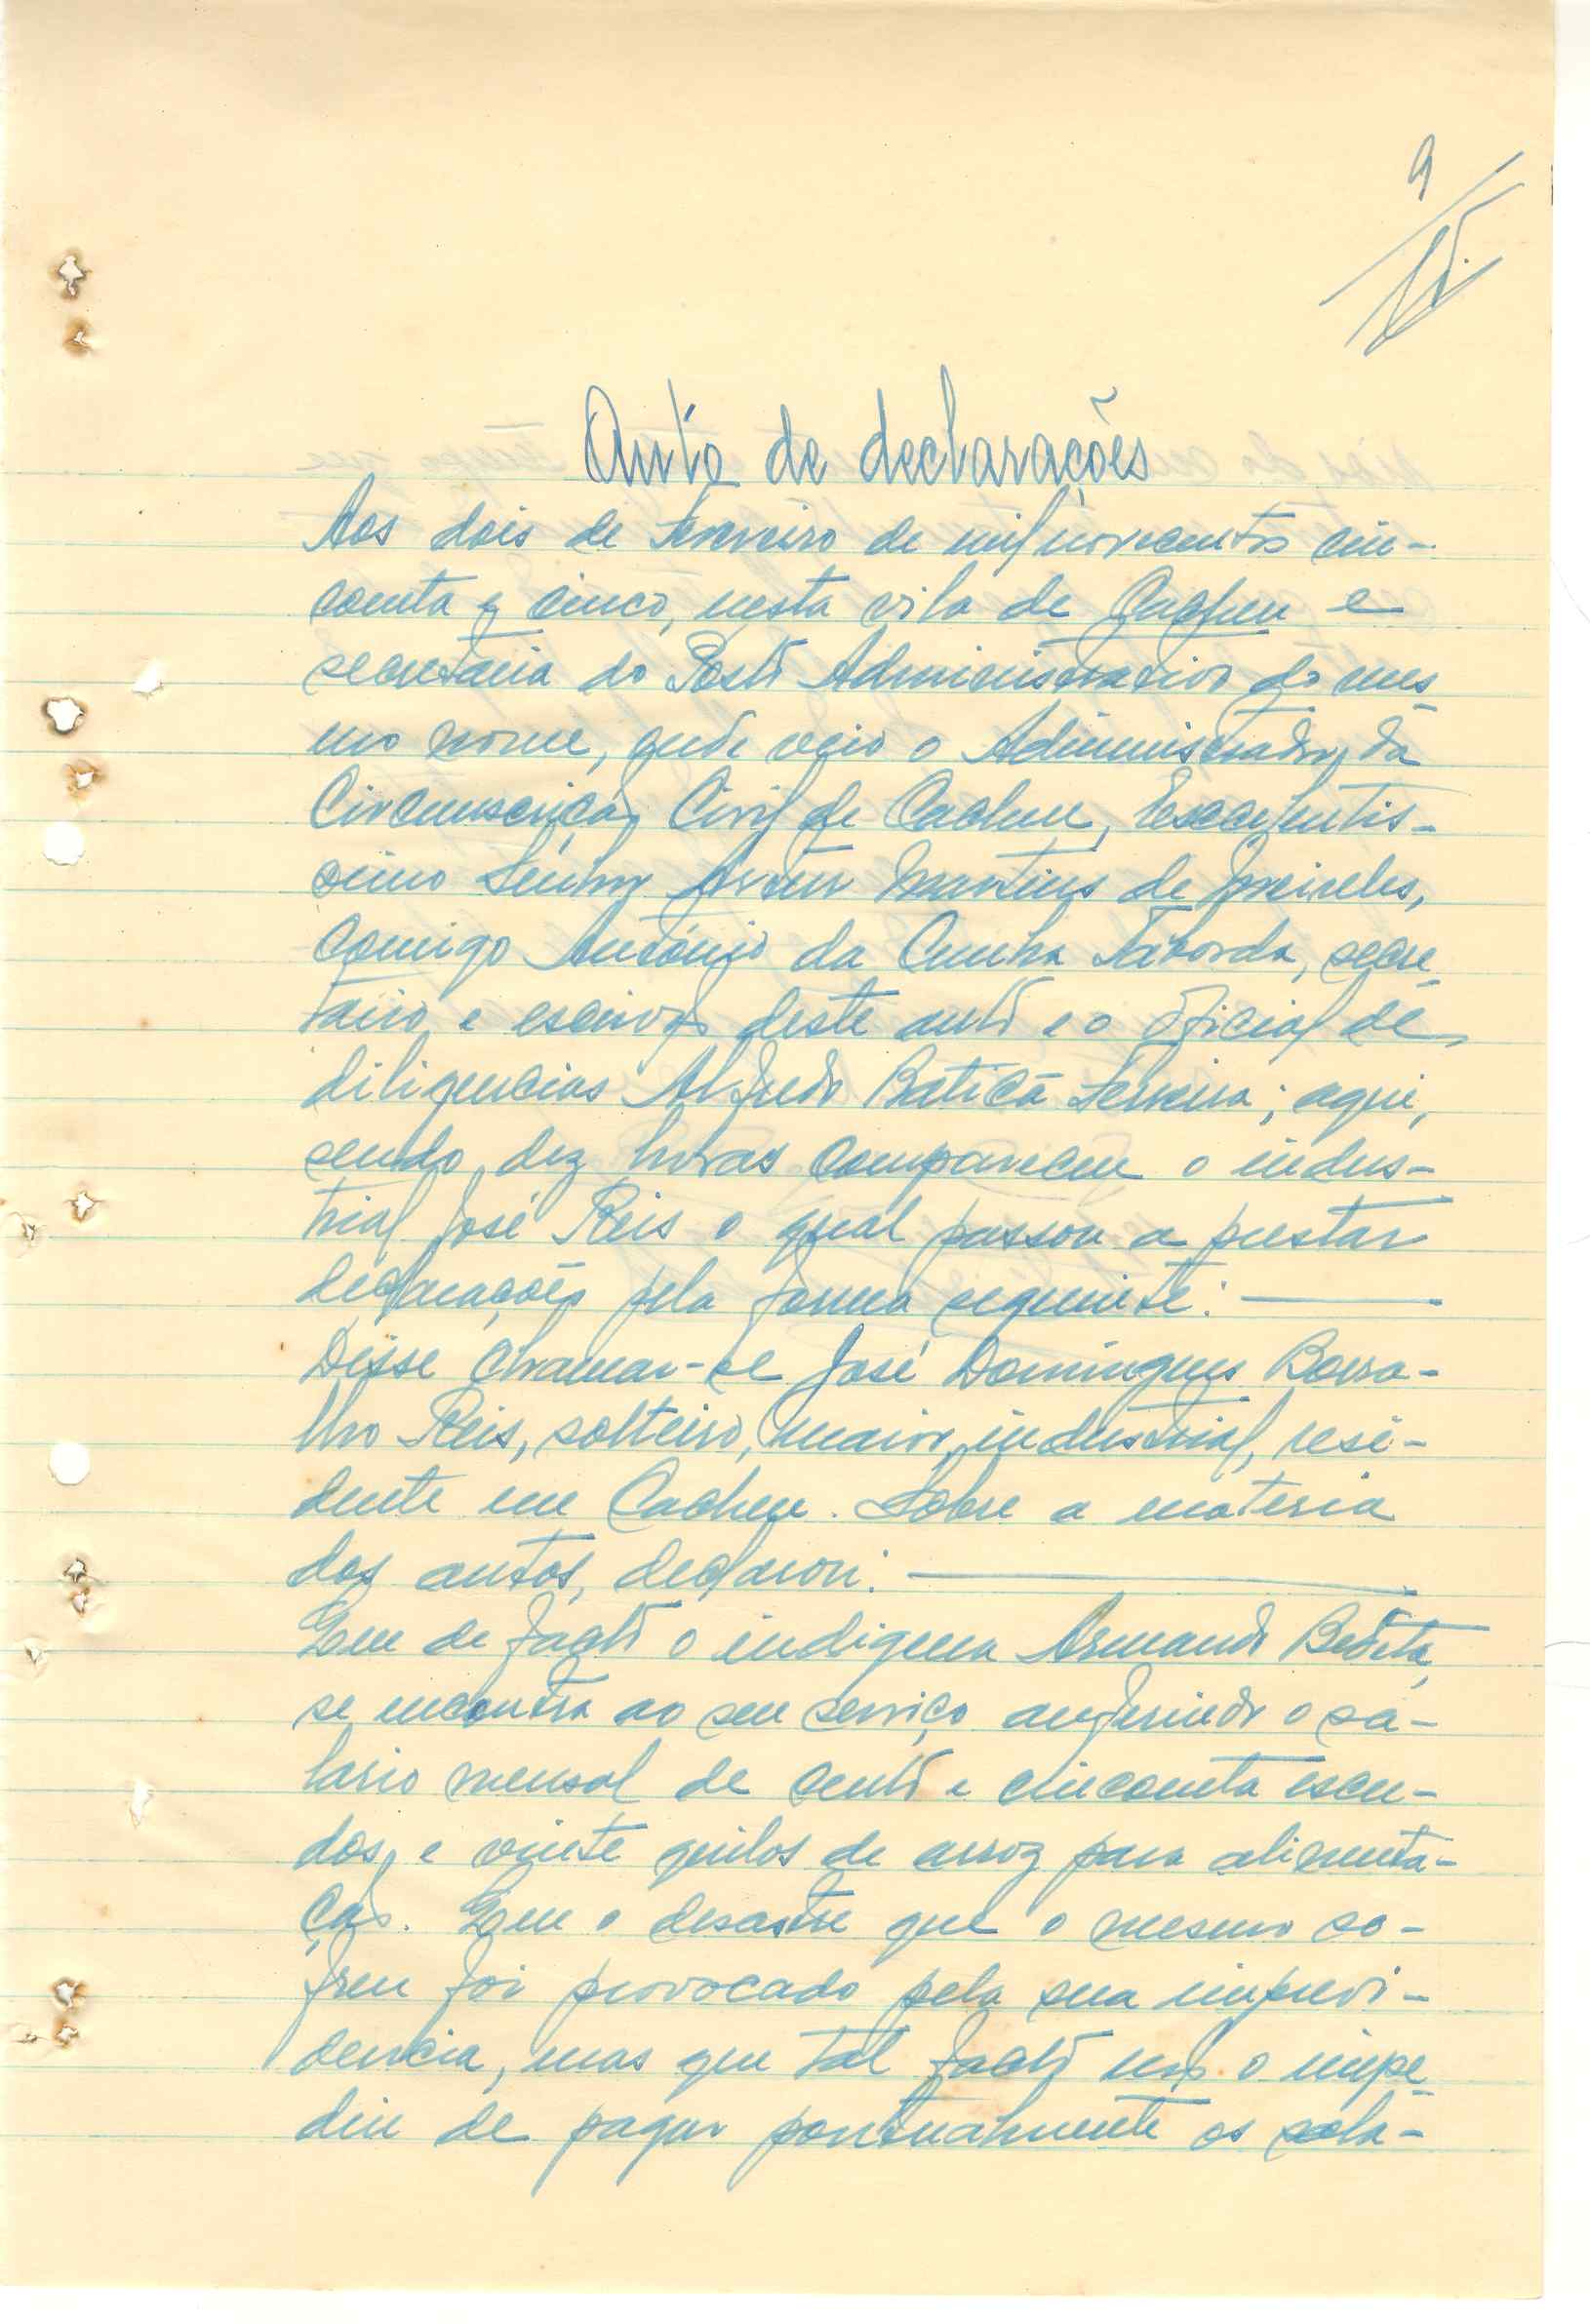 9
Auto de declarações
Aos dois de Fevereiro de mil novecentos cin-
coenta e cinco, nesta vila de Cacheu e
secretaria do Posto Administrativo do mes-
mo nome, onde veio o Administrador da
Circunscrição Civil de Cacheu, Excelentis-
simo Senhor Artur Martins de Meireles,
comigo António da Cunha Taborda, secre-
tário e escrivão deste auto e o oficial de
diligencias Alfredo Baticã Ferreira; aqui,
sendo dez horas compareceu o indus-
trial José Reis o qual passou a prestar
declarações pela forma seguinte:
Disse chamar-se José Domingues Borra-
lho Reis, solteiro, maior, industrial, resi-
dente em Cacheu. Sobre a materia
dos autos, declarou:
Que de facto o indigena Armando
se encontra ao seu serviço auferindo o sa-
lario mensal de cento e cincoenta escu-
dos, e vinte quilos de arroz para alimenta-
ção. Que o desastre que o mesmo so-
freu foi provocado pela sua imprevi-
dencia, mas que tal facto não o impe-
diu de pagar pontualmente os salá-